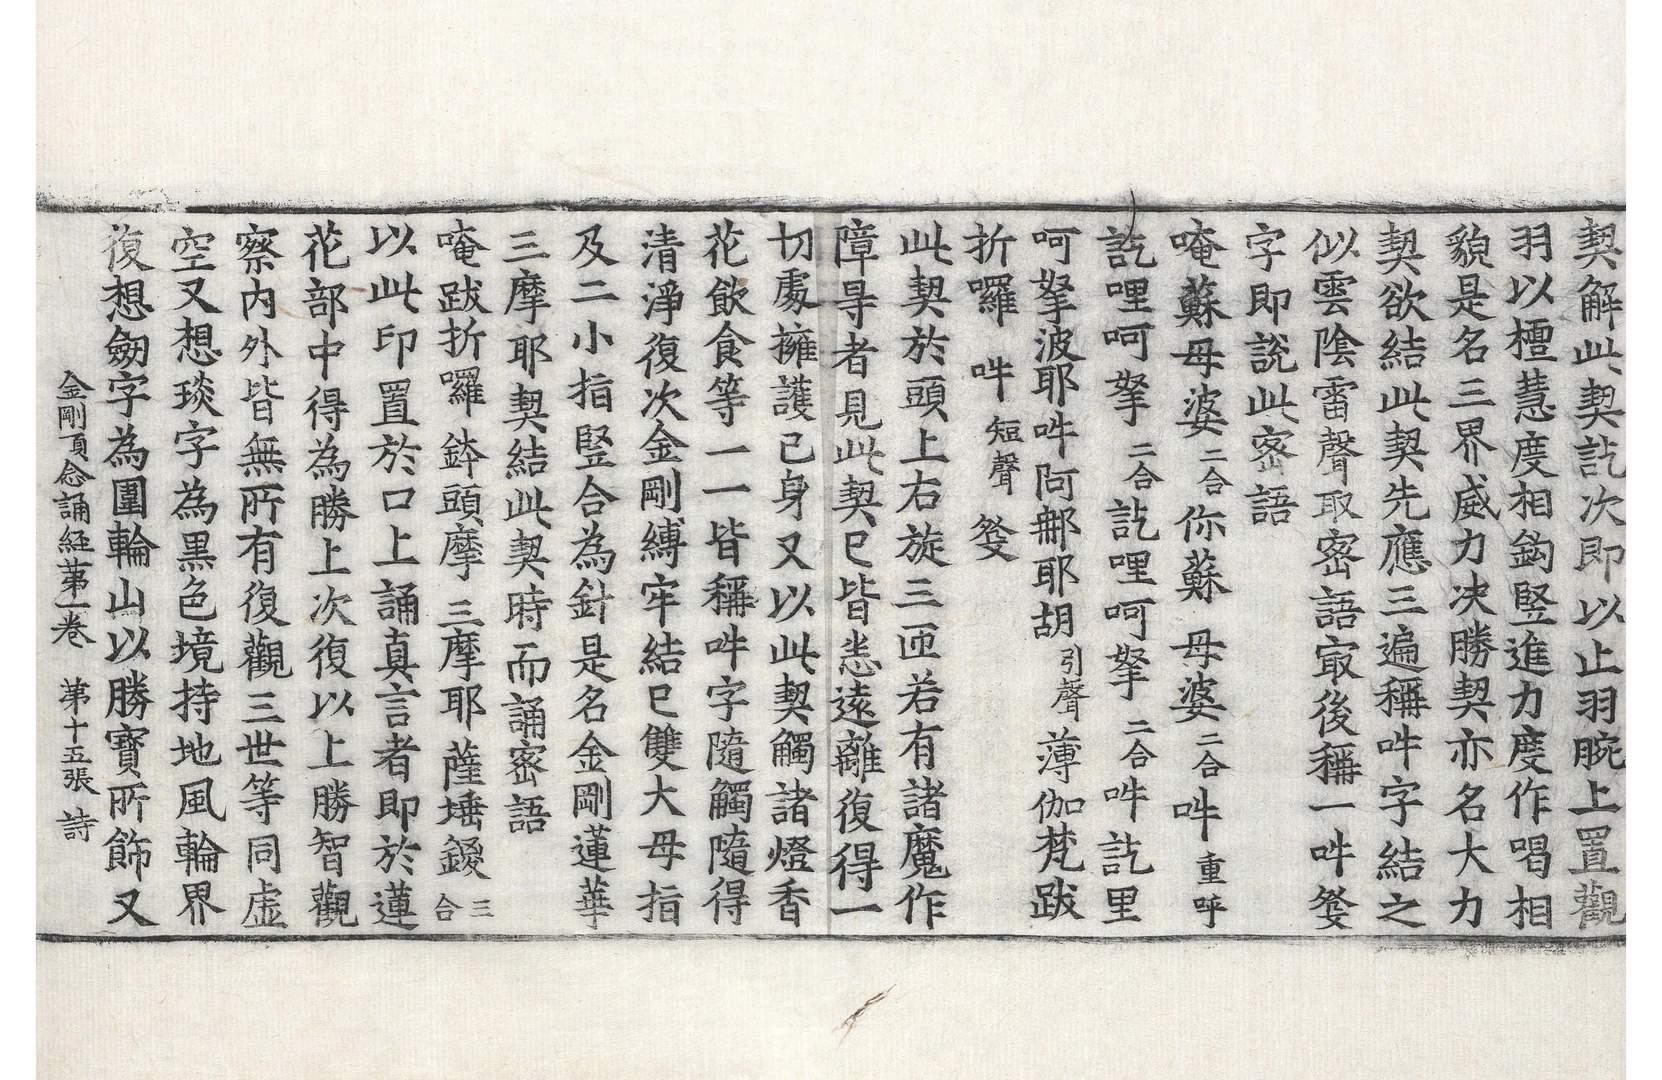 契解此契訖次即以止羽腕上置觀
羽以檀慧度相鈎竪進力度作喝相
皃是名三界威力决勝契亦名大力
契欲結此契先應三遍稱吽字結之
似雲陰雷聲取密語㝡後稱一吽發
字即説此密語
唵蘇母婆二合你蘇母婆二合吽重呼
訖哩呵拏二合訖哩呵拏二合吽訖里
呵拏波耶吽阿那耶胡引聲薄伽梵跋
折囉吽短聲發
此契於頭上右旋三匝若有諸魔作
障㝵者見此契已皆悉遠離復得一
切處擁護已身又以此契觸諸燈香
花飲食等一一皆稱吽字隨觸隨得
清淨復次金剛縛牢結已雙大母指
及二小指竪合為針是名金剛蓮華
三摩耶契結此契時而誦密語
唵跋折囉鉢頭摩三摩耶薩埵鑁三合
以此印置於口上誦真言者即於蓮
花部中得為勝上次復以上勝智觀
察内外皆無所有復觀三世等同虛
空又想琰字為黒色境持地風輪界
復想劒字為圍輪山以勝寶所飾又
金剛頂念誦経第一卷　第十五張　詩